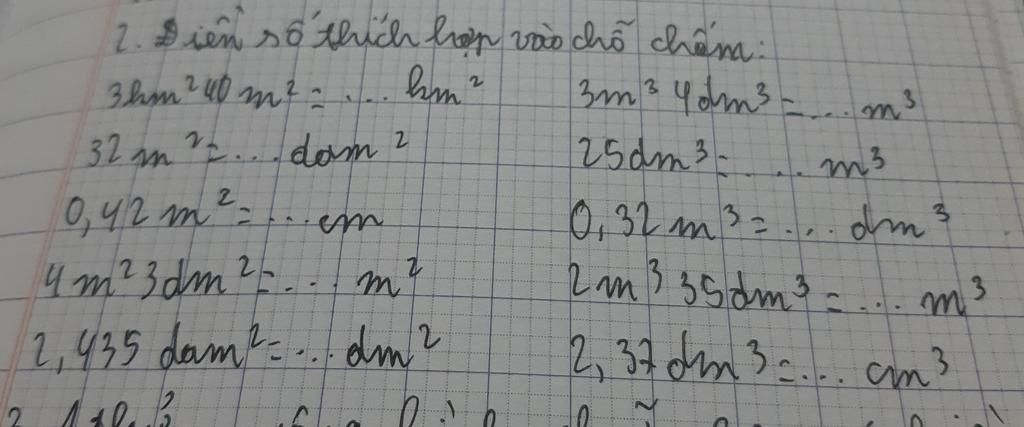 2. Điền số thích hợp vào chỗ chấm:
3hm² 40 m² = ... hm² 3m³ 4dm³ = ... m³
32 m² = ... dam² 25dm³ = ... m³
0,42 m² = ... cm 0,32 m³ = ... dm³
4m² 3dm² = ... m² 2m³ 35dm³ = ... m³
2,435 dam² = ... dm² 2,37 dm³ = ... cm³